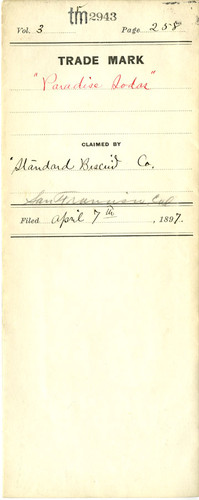 tfn 2943
Vol. 3 Page 258
TRADE MARK
"Paradise Sodas"
CLAIMED BY
Standard Biscuit Co.
San Francisco Cal
Filed April 7th, 1897.